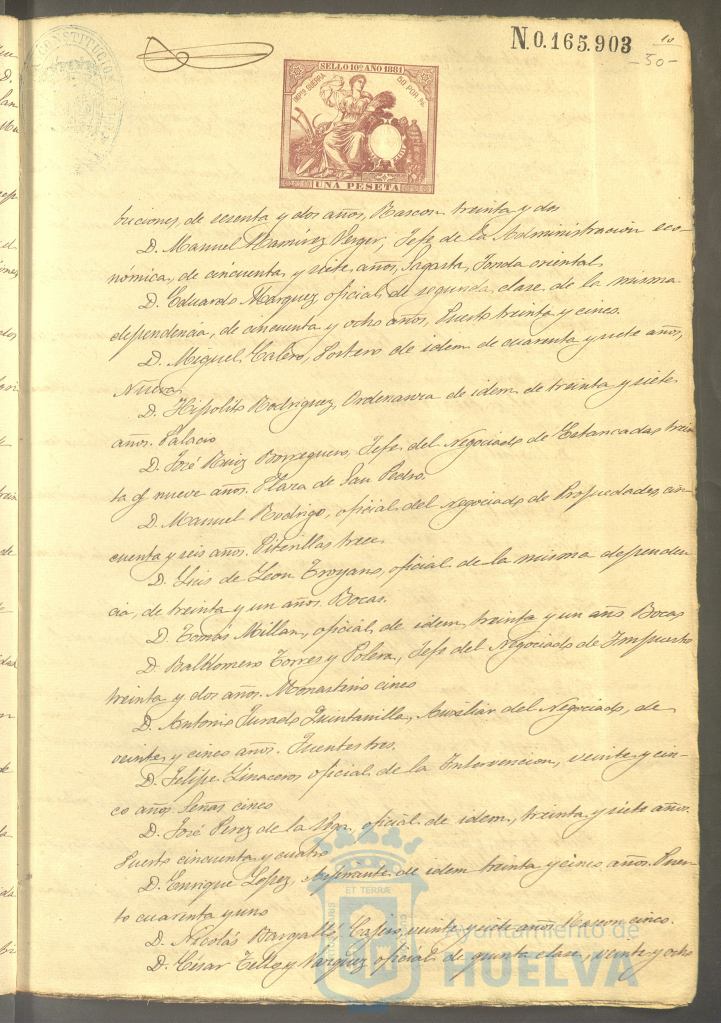 N.0.165.903
10
-50-
SELLO 10º AÑO 1881
IMPTO GUERRA
50 POR %
UNA PESETA
buciones, de sesenta y dos años, Rascon treinta y dos
D. Manuel Ramírez Verger, Jefe de la Administracion eco-
nómica, de cincuenta y siete años, Sagasta, Fonda oriental
D. Eduardo Marquez oficial de segunda clase de la misma
dependencia, de cincuenta y ocho años, Puerto treinta y cinco.
D. Miguel Calero, Portero de idem de cuarenta y siete años,
Nueva.
D. Hipolito Rodriguez, Ordenanza de idem de treinta y siete
años. Palacio
D. José Ruiz Borreguero, Jefe del Negociado de Estancadas trein
ta y nueve años. Plaza de San Pedro.
D. Manuel Rodrigo, oficial del negociado de Propiedades, cin
cuenta y seis años. Piterillas trece
D. Luis de Leon Troyano, oficial de la misma dependen
cia, de treinta y un años. Bocas.
D. Tomás Millan, oficial de idem, treinta y un año Bocas
D. Baldomero Torres y Polera, Jefe del Negociado de Impuesto
treinta y dos años. Monasterio cinco
D. Antonio Jurado Quintanilla, Auxiliar del Negociado, de
veinte y cinco años. Fuentes tres.
D. Felipe Linaceros oficial de la Intervencion, veinte y cin-
co años. Señas cinco
D. José Perez de la Vega, oficial de idem, treinta y siete años.
Puerto cincuenta y cuatro
D. Enrique Lopez, Aspirante de idem treinta y cinco años. Puer
to cuarenta y uno
D. Nicolás Bargalló, Cajero, veinte y siete años Rascon cinco.
D. César Tello y Vazquez oficial de quinta clase, veinte y ocho
ET TERRÆ
Ayuntamiento de
HUELVA